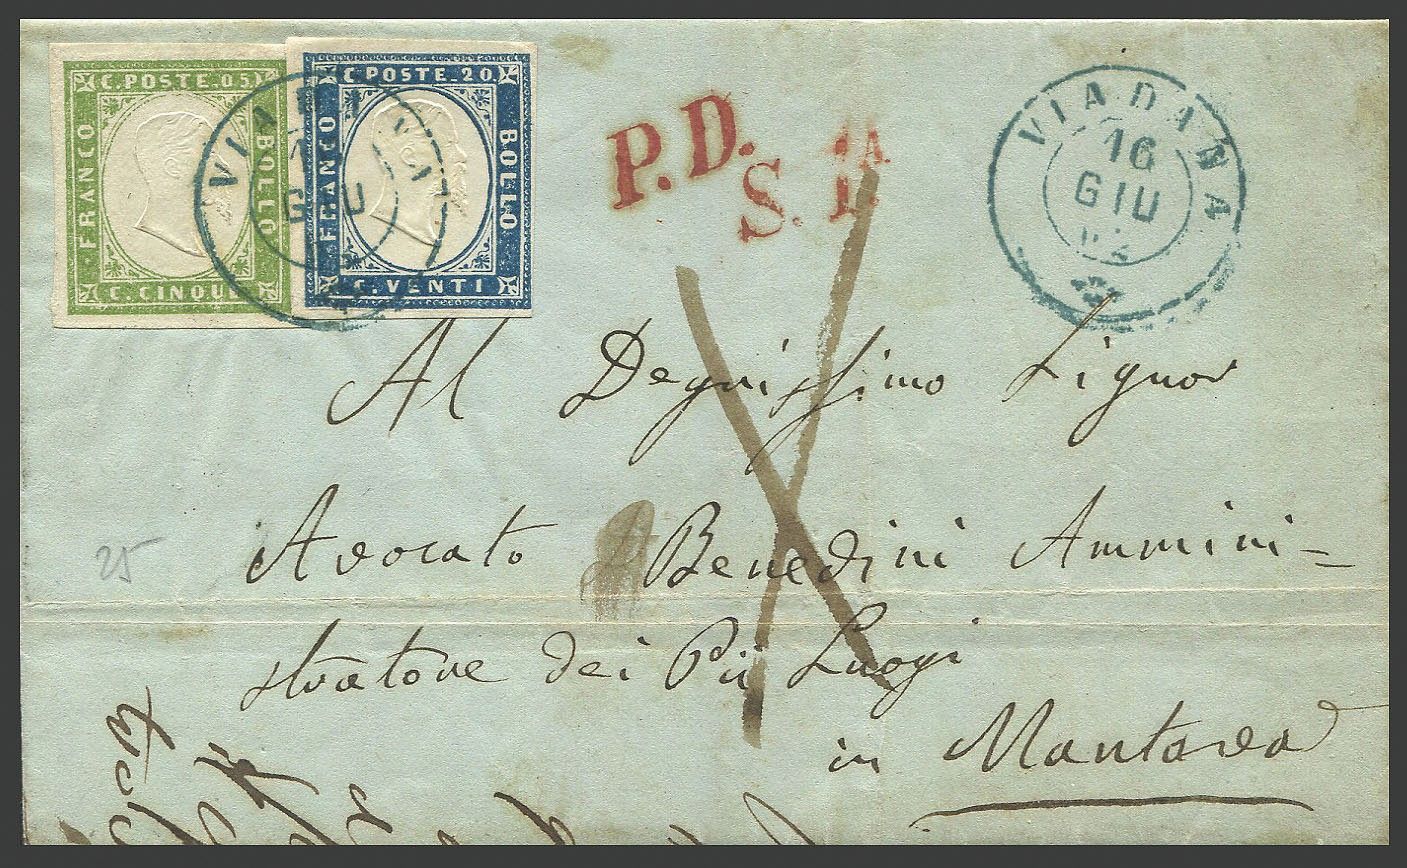 C. POSTE. 05.
FRANCO
BOLLO
C. CINQUE
C. POSTE. 20.
FRANCO
BOLLO
C. VENTI
P.D.
S. 1ª
VIADANA
16
GIU
62
Al Degnissimo Signor
Avvocato Benedini Ammini=
stratore dei Pii Luoghi
in Mantova
25